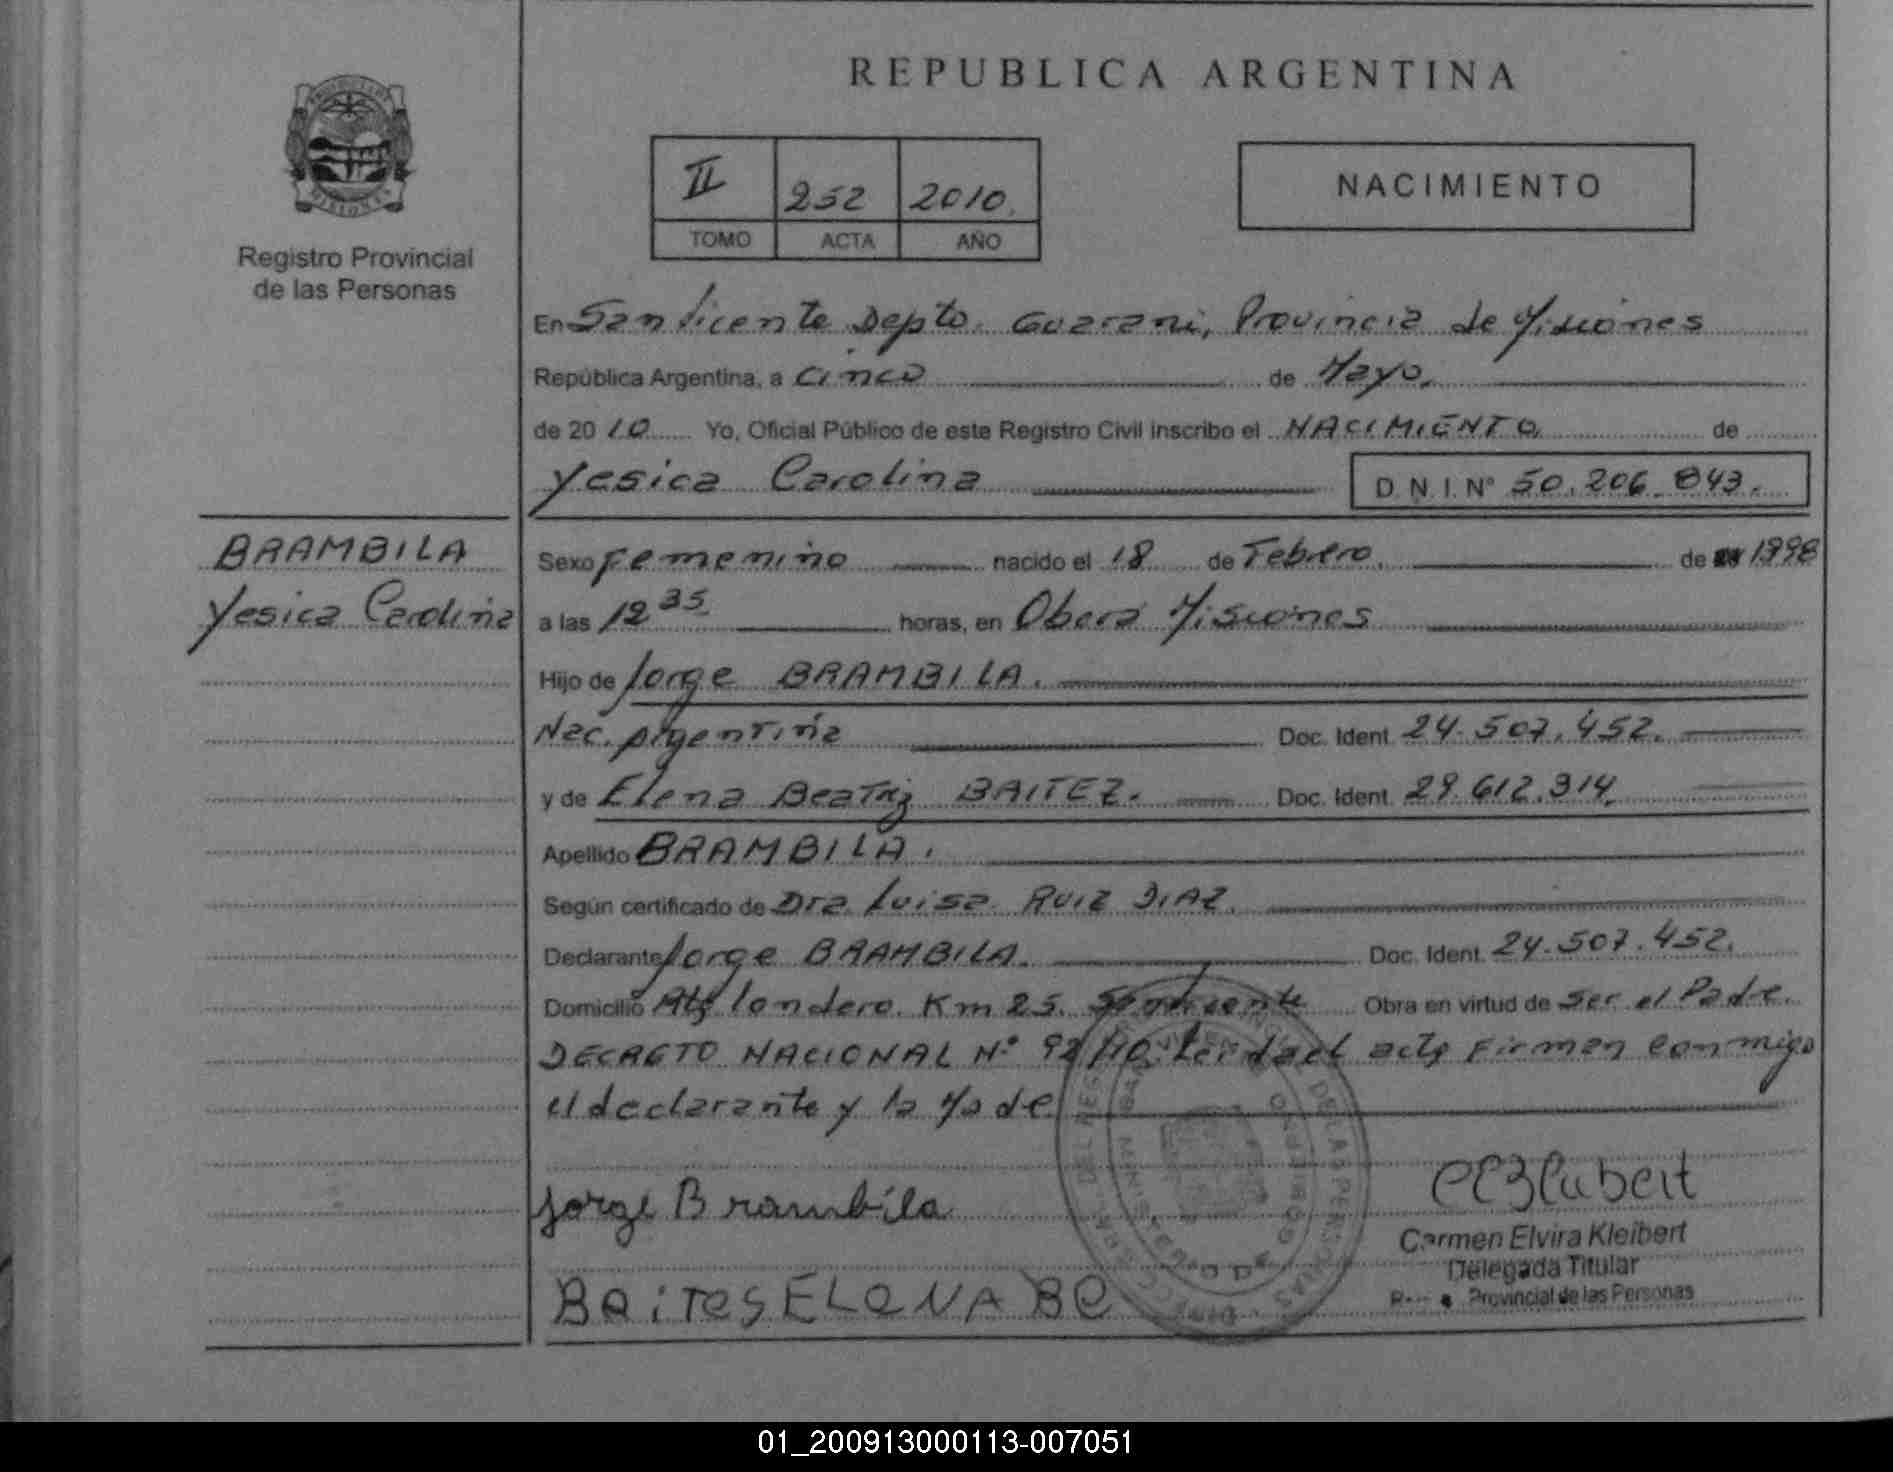 REPUBLICA ARGENTINA
II 252 2010.
TOMO ACTA AÑO
NACIMIENTO
Registro Provincial
de las Personas
En San Vicente Depto. Guarani, Provincia de Misiones
República Argentina, a Cinco de Mayo.
de 2010 Yo, Oficial Público de este Registro Civil inscribo el NACIMIENTO de
Yesica Carolina D.N.I. Nº 50.206.843.
BRAMBILA
Yesica Carolina
Sexo Femenino nacido el 18 de Febrero. de 1998
a las 12 35 horas, en Oberá Misiones
Hijo de Jorge BRAMBILA.
Nac. Argentina Doc. Ident. 24.507.452.
y de Elena Beatriz BAITEZ. Doc. Ident. 29.612.314.
Apellido BRAMBILA.
Según certificado de Dra. Luisa RUIZ DIAZ.
Declarante Jorge BRAMBILA. Doc. Ident. 24.507.452.
Domicilio londero. Km 25. Obra en virtud de Ser el Padre.
DECRETO NACIONAL Nº 92/10. acta Firman conmigo
el declarante y la Madre
Jorge Brambila
BaiTes ELeNA Be
Carmen Elvira Kleibert
Delegada Titular
Provincial de las Personas
01_200913000113-007051